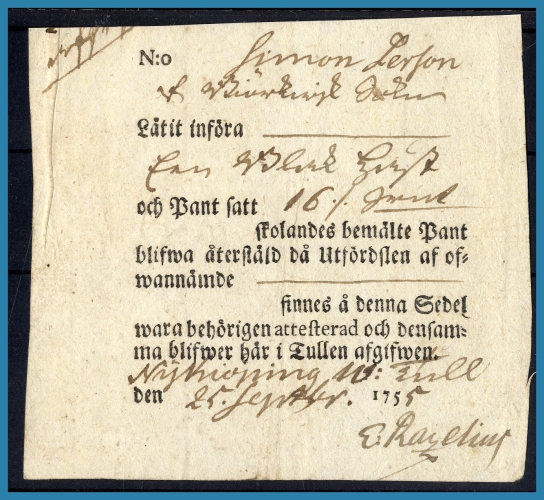 N:o Simon Person
Låtit införa
Een Blak Häst
och Pant satt 16 s. Smt
skolandes bemälte Pant
blifwa återstäld då Utfördslen af of-
wannämde
finnes å denna Sedel
wara behörigen attesterad och densam-
ma blifwer här i Tullen afgifwen.
Nykiöping W: Tull
den 25. Septbr. 1755